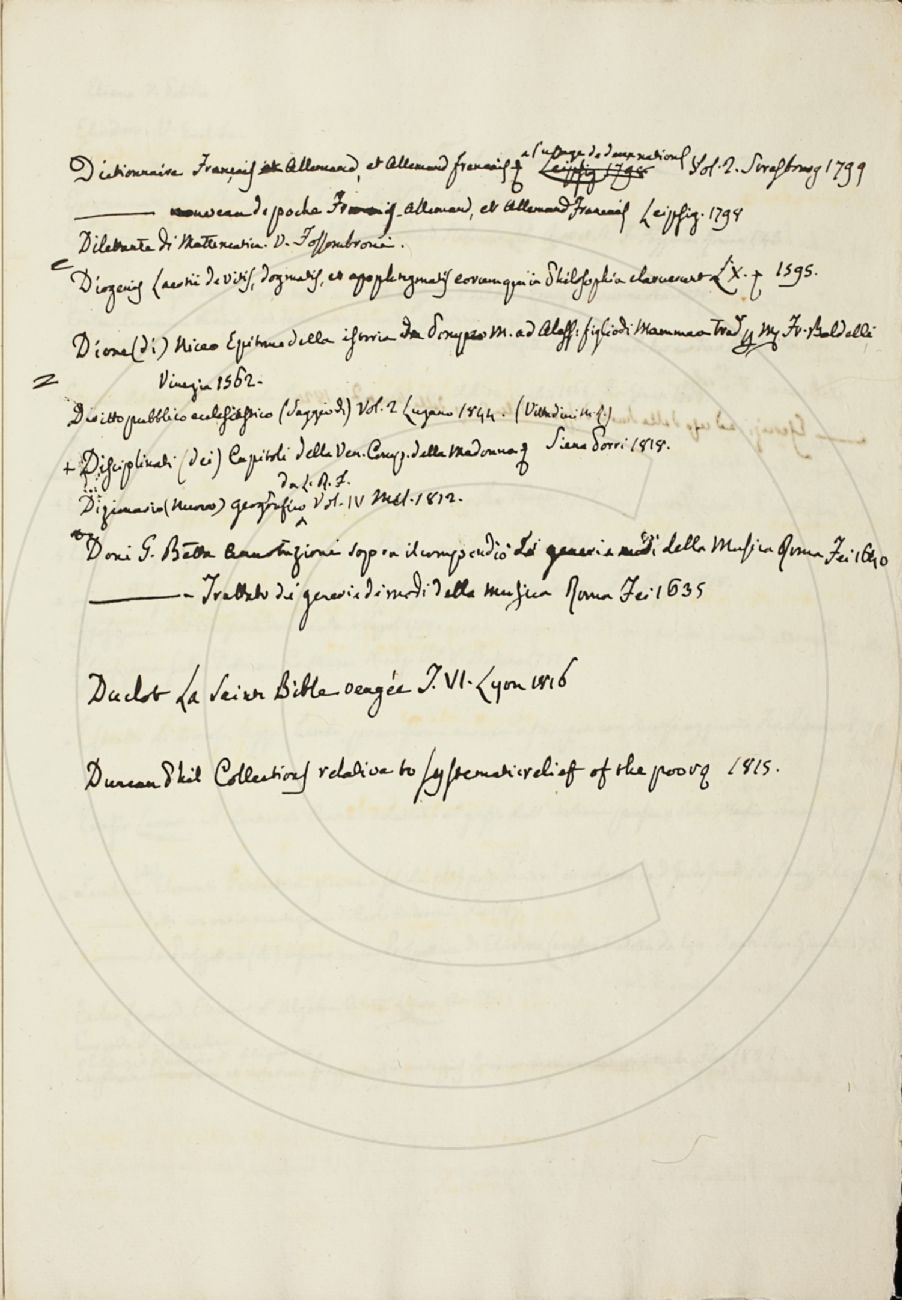 Dictionnaire Français Allemand, et Allemand français a l'usage de deux nations Leipzig 1798 Vol. 2. Strasbourg 1799
——— nouveau de poche Français-Allemand, et Allemand Français Leipsig. 1798
Dilettante di Mattematica. V. Fossombroni.
Diogenis Laertii de vitis, dogmatis, et apophtegmatis eorum qui in Philosophia claruerunt L. X. 1595.
Dione (di) Niceo Epitome della istoria da Pompeo M. ad Aless: figlio di Mammea trad. Fr. Baldelli
Vinegia 1562.
Diritto pubblico ecclesiastico (Saggio di) Vol. 2 Lugano 1844. (Vittadini M.)
+ Disciplinati (dei) Capitoli della Ven. Comp. della Madonna Siena Porri 1818.
da L. R. F.
Dizionario (Nuovo) geografico Vol. IV Mil. 1812.
Doni G. Batta Annotazioni sopra il compendio de' generi e modi della Musica Roma Fei 1640
——— Trattato de' generi e di modi della Musica Roma Fei 1635
Duclot La Sainte Bible vengée T. VI. Lyon 1816
Duncan Phil Collections relative to systematic relief of the poor 1815.